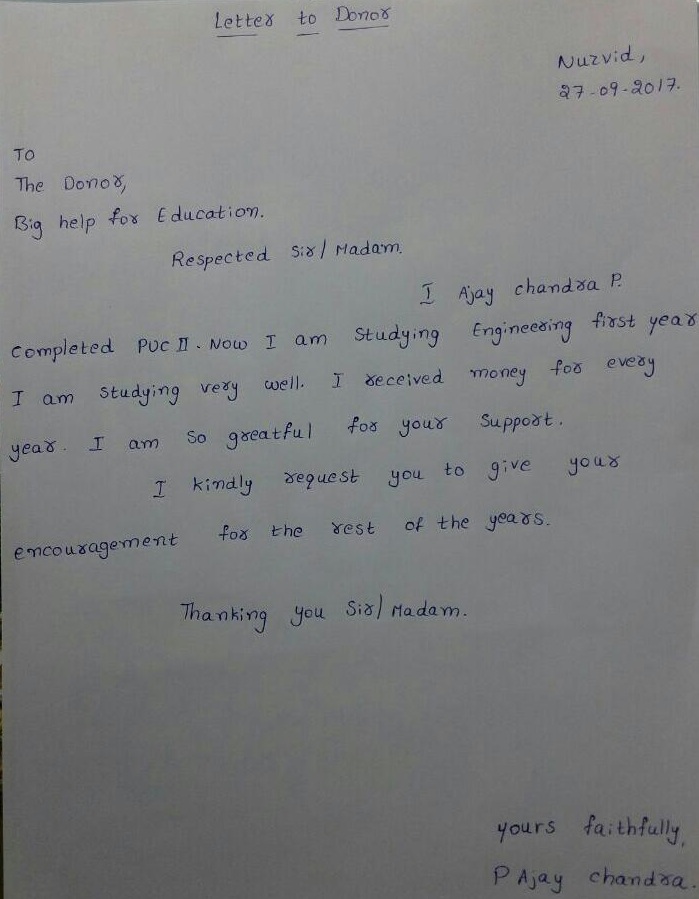 Letter to Donor
Nuzvid,
27-09-2017.
To
The Donor,
Big help for Education.
Respected Sir/Madam.
I Ajay chandra P.
completed PUC II. Now I am Studying Engineering first year
I am studying very well. I received money for every
year. I am so greatful for your support.
I kindly request you to give your
encouragement for the rest of the years.
Thanking you Sir/Madam.
yours faithfully,
P Ajay chandra.